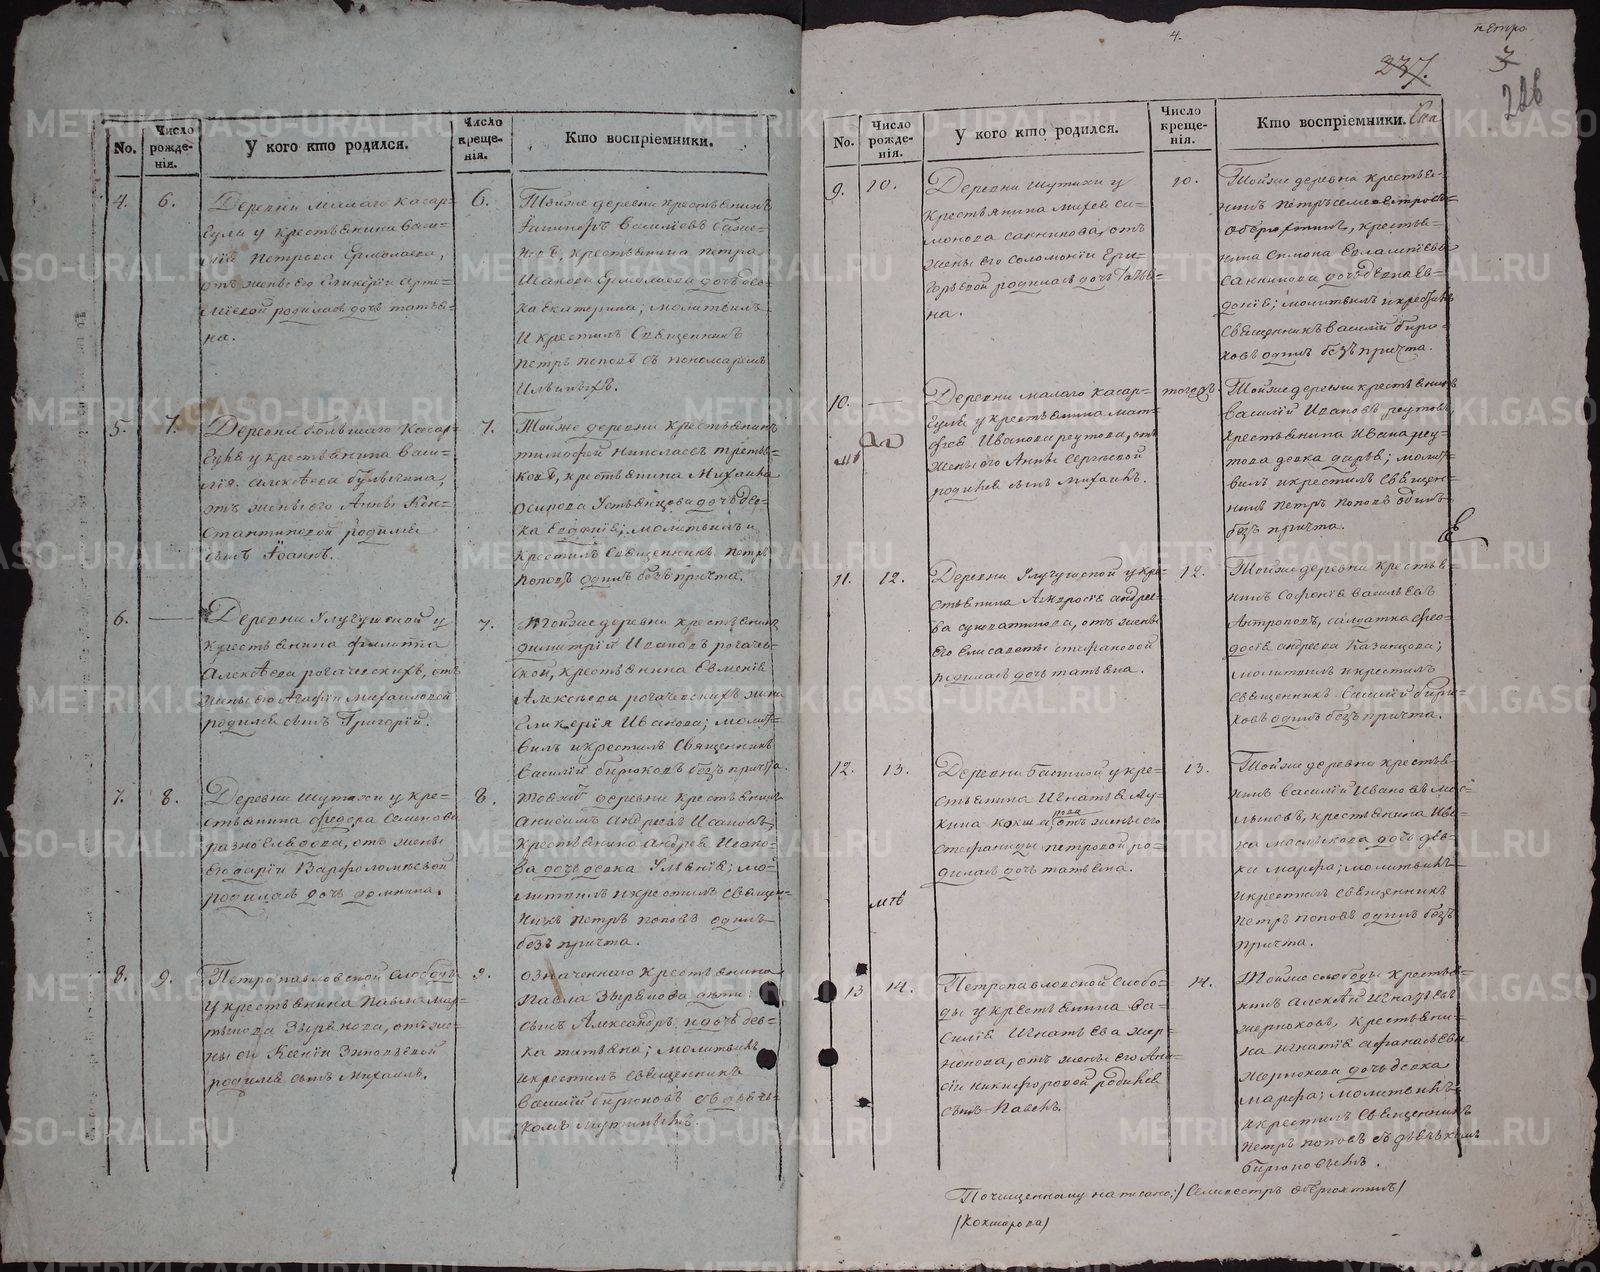 No.
Число рожденія.
У кого кто родился.
Число крещенія.
Кто воспріемники.
4.
6.
Деревни Малаго Касар-
гуля у крестьянина Васи-
лія Петрова Ермолаева,
отъ жены его Гликеріи Арте-
міевой родилась дочь татья-
на.
6.
Тойже деревни крестьянинъ
Василіевъ
крестьянина петра
Исакова Ермолаева дочь дев-
ка екатерина; молитвилъ
и крестилъ Священникъ
петръ поповъ съ пономаремъ
5.
7.
Деревни большаго Касар-
гуля у крестьянина Васи-
лія Алексѣева
отъ жены его Анны Кон-
стантиновой родился
сынъ Іоаннъ.
7.
Тойже деревни крестьянинъ
тимофей Николаевъ третья-
ковъ, крестьянина Михаила
Осипова Устьянцова дочь дев-
ка молитвилъ и
крестилъ Священникъ петръ
поповъ одинъ безъ причта.
6.
Деревни у
крестьянина филиппа
Алексѣева рогачевскихъ, отъ
жены его Агафіи Михайловой
родился сынъ Григорій.
7.
Тойже деревни крестьянинъ
димитрій Ивановъ рогачев-
ской, крестьянина Евменія
Алексѣева рогачевскихъ жена
Гликерія Иванова; молит-
вилъ и крестилъ Священникъ
василій бирюковъ безъ причта.
7.
8.
Деревни шутихи у кре-
стьянина федора Семенова
отъ жены
его дарьи Варфоломеевой
родилась дочь домнина.
8.
тояже деревни крестьянинъ
Андреевъ Исаковъ,
крестьянина Андрея Исако-
ва дочь девка Ульянія; мо-
литвилъ и крестилъ священ-
никъ петръ поповъ одинъ
безъ причта.
8.
9.
Петропавловской слободы
у крестьянина Павла Мар-
тынова Зырянова, отъ же-
ны его Ксеніи Зиновьевой
родился сынъ Михаилъ.
9.
означеннаго крестьянина
Павла Зырянова дѣти:
сынъ Александръ и дочь дев-
ка татьяна; молитвилъ
и крестилъ священникъ
василій бирюковъ съ дьяч-
комъ
4.
петро
237.
3
226
No.
Число рожденія.
У кого кто родился.
Число крещенія.
Кто воспріемники.
9.
10.
Деревни шутихи у
крестьянина Михея Си-
монова Санникова, отъ
жены его Соломоніи Гри-
горьевой родилась дочь Татья-
на.
10.
Тойже деревни крестья-
нинъ петръ
крестья-
нина Симона Евлампіева
Санникова дочь девка Ев-
докія; молитвилъ и крестилъ
Священникъ василій бирю-
ковъ одинъ безъ причта.
10.
Деревни малаго Касар-
гуля у крестьянина Мат-
фея Иванова реутова, отъ
жены его Анны Сергѣевой
родился сынъ Михаилъ.
тогожъ.
Тойже деревни крестьянинъ
василій Ивановъ реутовъ,
крестьянина Ивана реу-
това девка дарья; молит-
вилъ и крестилъ Священ-
никъ петръ поповъ одинъ
безъ причта.
11.
12.
Деревни у кре-
стьянина Амвросія Андрее-
ва отъ жены
его елисаветы стефановой
родилась дочь татьяна.
12.
Тойже деревни крестья-
нинъ Софонія васильевъ
Антроповъ, салдатка Фео-
досья андреева Казанцова;
молитвилъ и крестилъ
священникъ василій бирю-
ковъ одинъ безъ причта.
12.
13.
Деревни у кре-
стьянина Игнатья Лу-
кина кокша рова отъ жены его
стефаниды петровой ро-
дилась дочь татьяна.
13.
Тойже деревни крестья-
нинъ василій Ивановъ Мас-
лыковъ, крестьянина Ива-
на маслыкова дочь дѣв-
ка марфа; молитвилъ
и крестилъ священникъ
петръ поповъ одинъ безъ
причта.
13
14.
Петропавловской слобо-
ды у крестьянина Ва-
силія Игнатьева жер-
нокова, отъ жены его
никифоровой родился
сынъ Павелъ.
14.
Тойже слободы крестья-
нинъ Алексѣй Игнатьевъ
жерноковъ, крестьяни-
на Игнатія афанасьева
жернокова дочь девка
марфа; молитвилъ
и крестилъ Священникъ
петръ поповъ съ дьячкомъ
бирюковымъ.
По чищенному написано;
/кокшарова/
METRIKI.GASO-URAL.RU